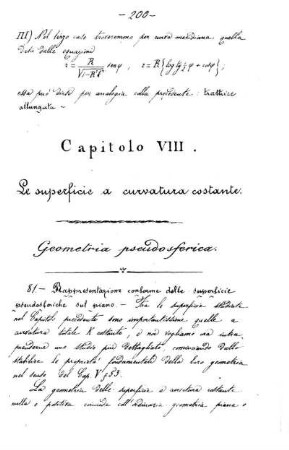 - 200 -
III) Nel terzo caso diremo per curva meridiana quella
data dalle equazioni
r = R/√(1-R²) sen φ , z = R { log tg ½ φ + cos φ } ;
essa può dirsi per analogia colla precedente: trattrice
allungata.
Capitolo VIII.
Le superficie a curvatura costante.
Geometria pseudosferica.
81 - Rappresentazione conforme delle superficie
pseudosferiche sul piano. - Fra le superficie studiate
nel Capitolo precedente sono importantissime quelle a
curvatura totale K costante, e noi vogliamo ora intra-
prenderne uno studio più dettagliato, cominciando dallo
stabilire le proprietà fondamentali della loro geometria
nel senso del Cap. V § 53.
La geometria delle superficie a curvatura costante
nulla o positiva coincide coll'ordinaria geometria piana o